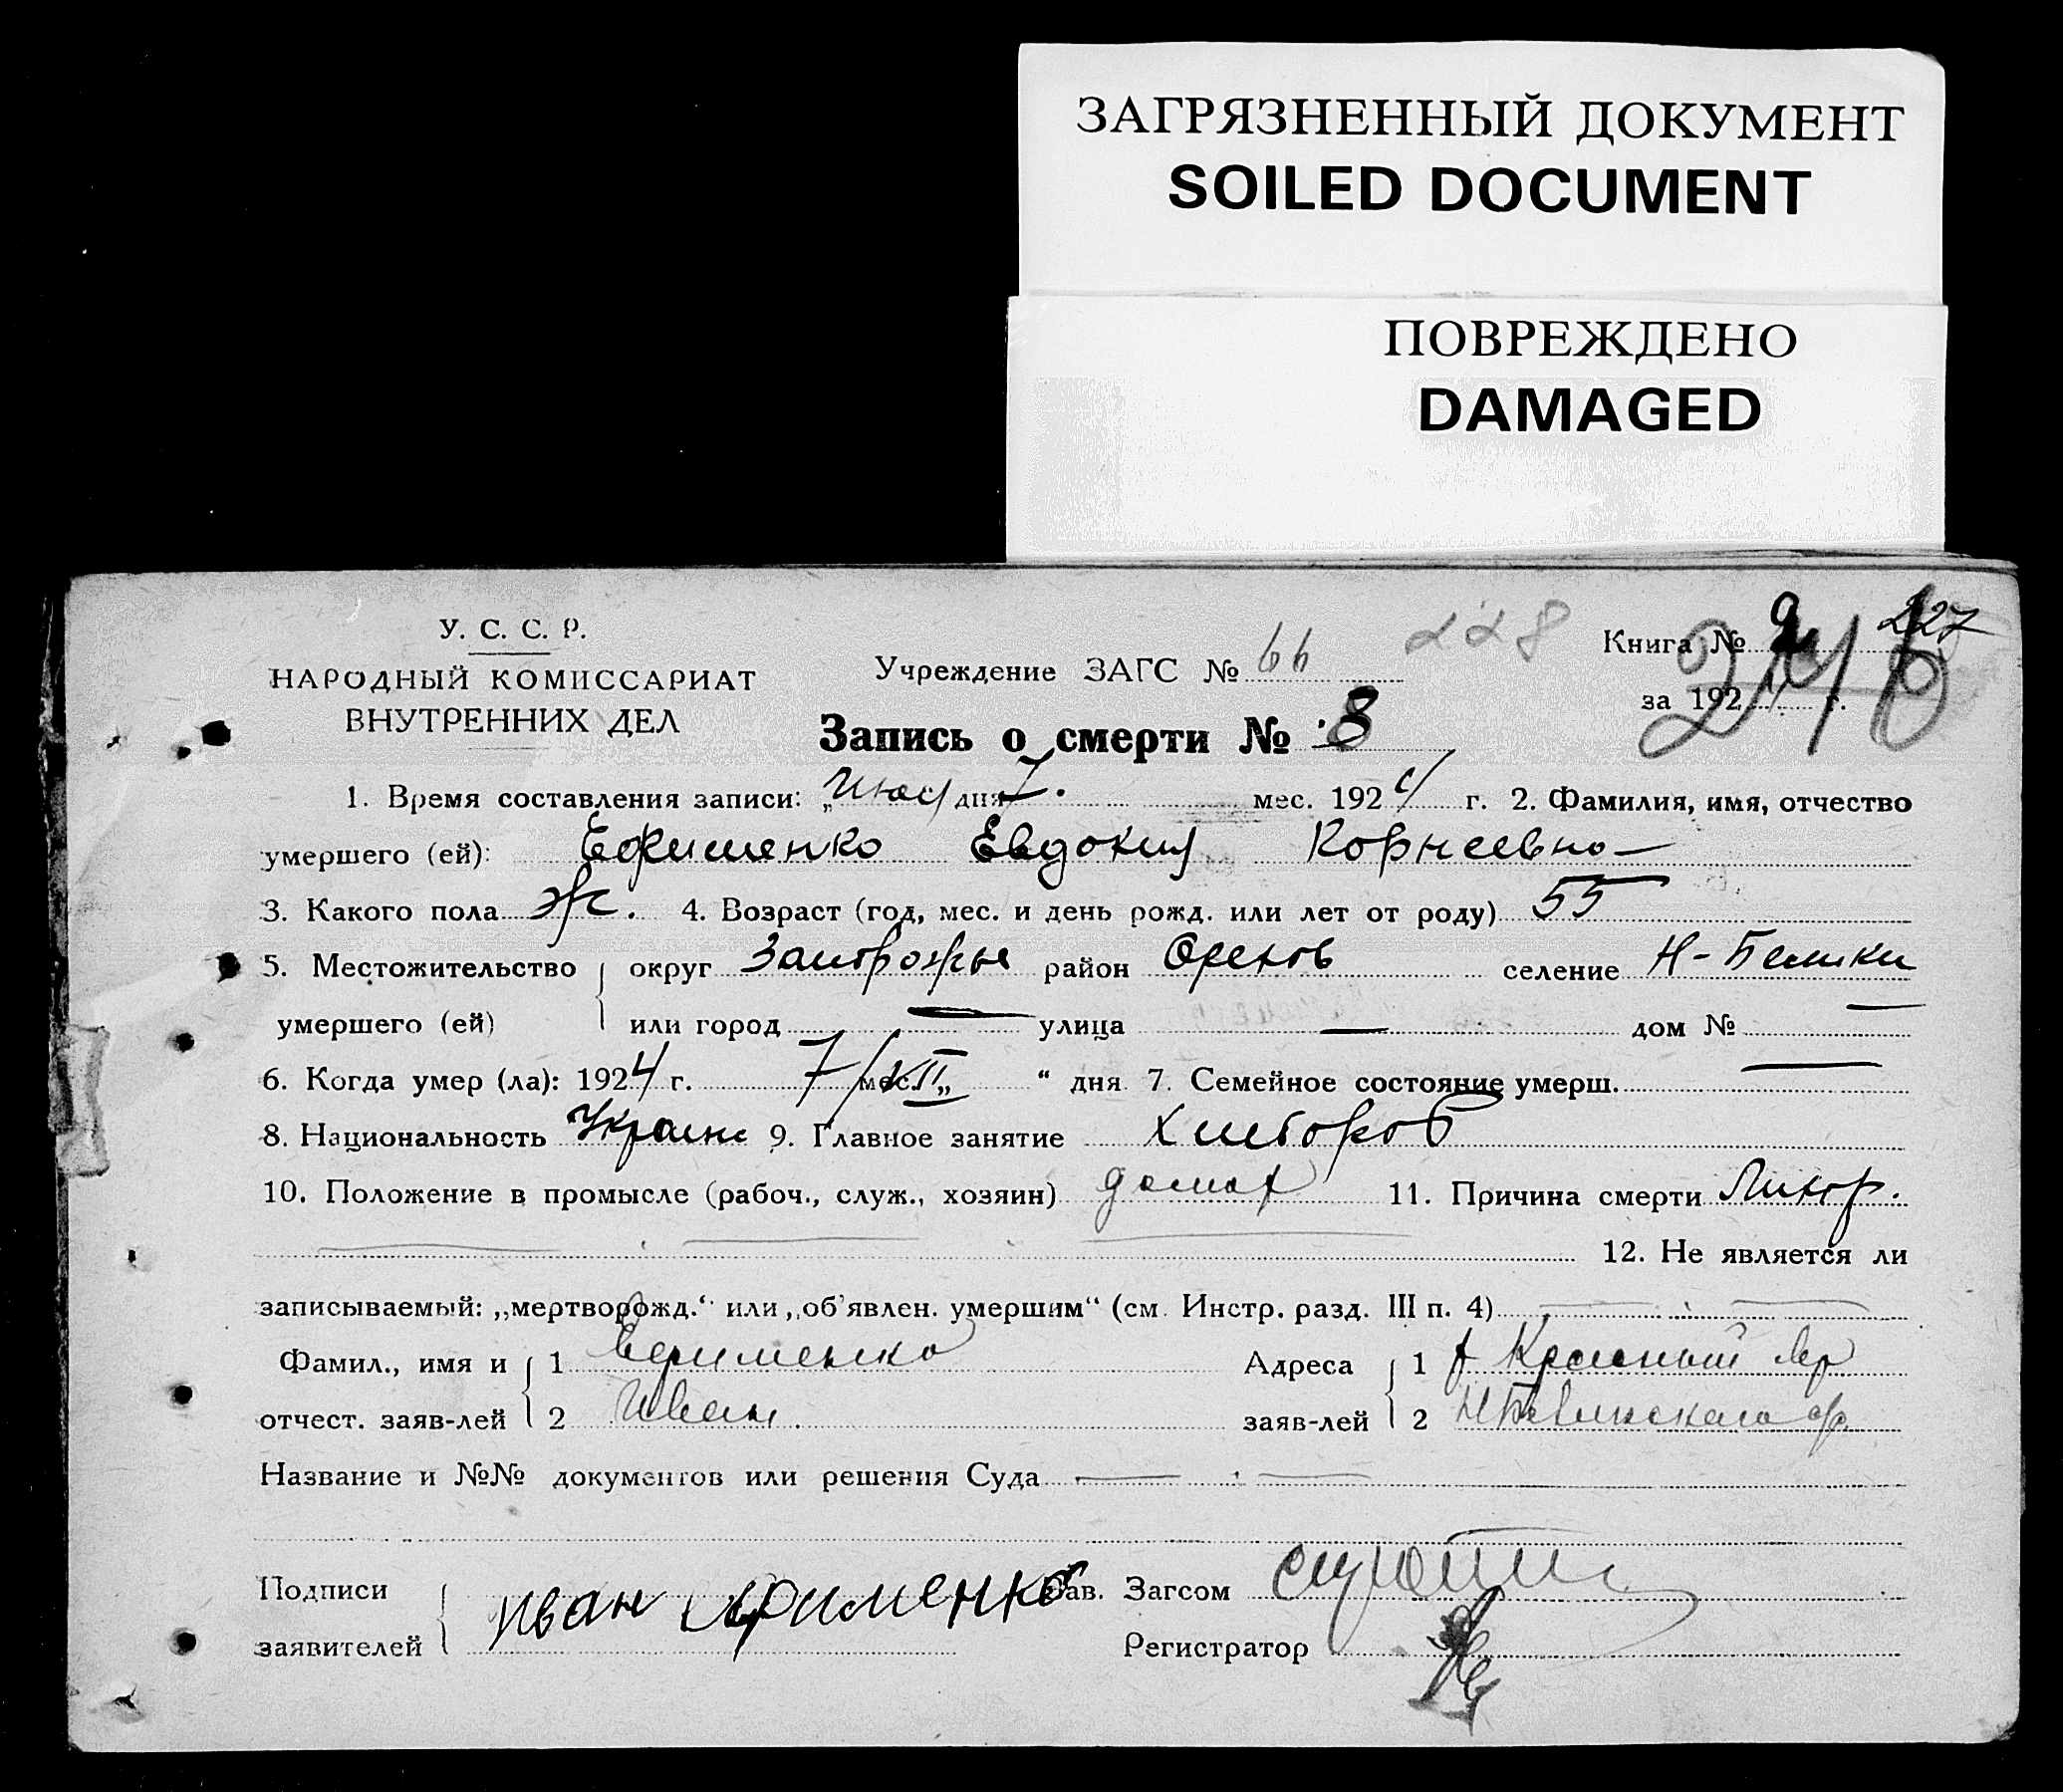 ЗАГРЯЗНЕННЫЙ ДОКУМЕНТ
SOILED DOCUMENT
ПОВРЕЖДЕНО
DAMAGED
У. С. С. Р.
НАРОДНЫЙ КОМИССАРИАТ
ВНУТРЕННИХ ДЕЛ
Учреждение ЗАГС № 66 228
Книга № 227
за 192 г.
Запись о смерти № 8
1. Время составления записи: „ дня 7. мес. 1924 г. 2. Фамилия, имя, отчество
умершего (ей): Ефименко Евдокия Корнеевна
3. Какого пола ж. 4. Возраст (год, мес. и день рожд. или лет от роду) 55
5. Местожительство округ Запорожье район Орехов селение Н-Белики
умершего (ей) или город — улица — дом № —
6. Когда умер (ла): 1924 г. 7/VII мес. „ “ дня 7. Семейное состояние умерш. —
8. Национальность Украин 9. Главное занятие Хлебороб
10. Положение в промысле (рабоч., служ., хозяин) домах 11. Причина смерти Лихор.
12. Не является ли
записываемый: „мертворожд.“ или „об'явлен. умершим“ (см. Инстр. разд. III п. 4)
Фамил., имя и 1 Ефименко Адреса 1 Красный Яр
отчест. заяв-лей 2 Иван. заяв-лей 2
Название и №№ документов или решения Суда
Подписи Иван Ефименко Зав. Загсом
заявителей Регистратор